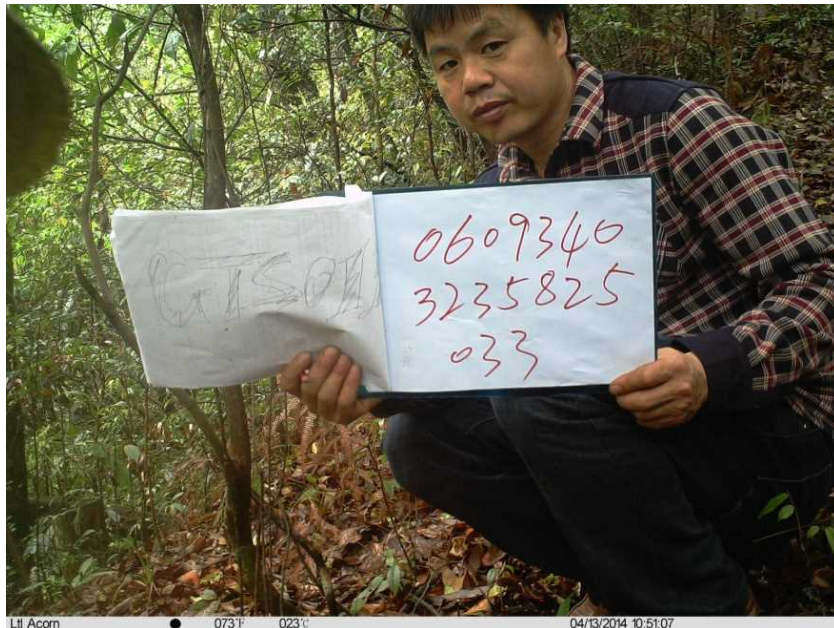 GTS011
0609340
3235825
033
Ltl Acorn ● 073°F 023°C 04/13/2014 10:51:07